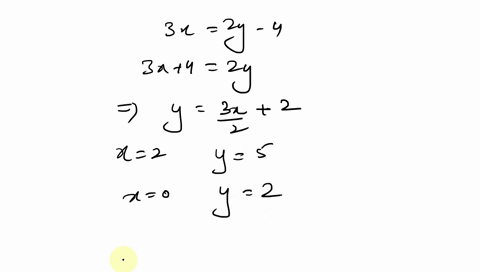 3x = 2y - 4
3x + 4 = 2y
⇒ y = 3x/2 + 2
x = 2 y = 5
x = 0 y = 2